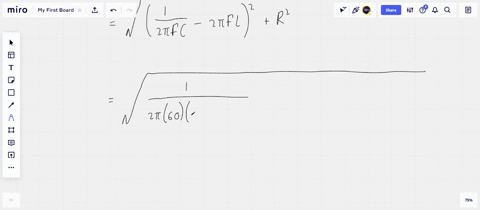 miro
My First Board
Share
= √((1/2πfC - 2πfL)² + R²
= √ 1/2π(60)(
79%